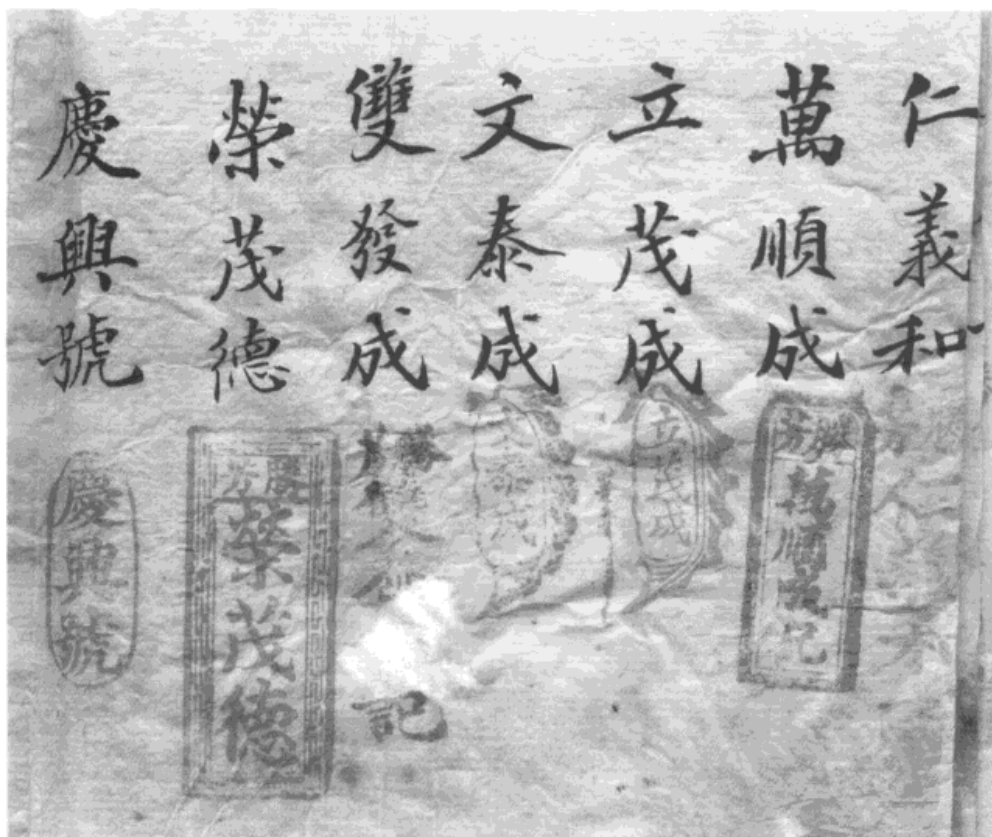 仁義和
萬順成
立茂成
文泰成
雙發成
榮茂德
慶興號
萬順成記
立茂成
記
榮茂德
慶興號